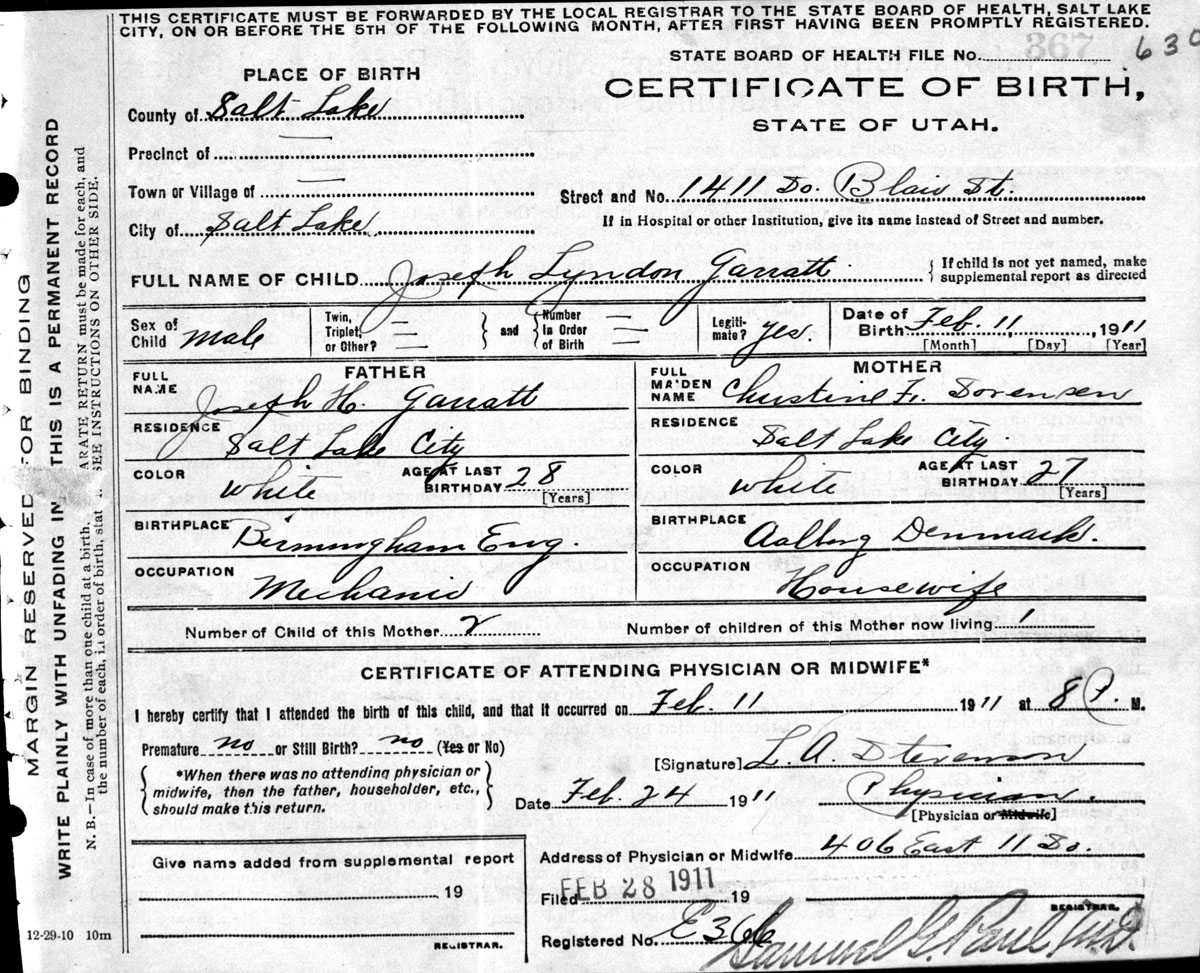 THIS CERTIFICATE MUST BE FORWARDED BY THE LOCAL REGISTRAR TO THE STATE BOARD OF HEALTH, SALT LAKE
CITY, ON OR BEFORE THE 5TH OF THE FOLLOWING MONTH, AFTER FIRST HAVING BEEN PROMPTLY REGISTERED.
STATE BOARD OF HEALTH FILE No. 367 630
PLACE OF BIRTH
CERTIFICATE OF BIRTH,
STATE OF UTAH.
County of Salt Lake
Precinct of —
Town or Village of —
Street and No. 1411 So. Blair St.
City of Salt Lake
If in Hospital or other Institution, give its name instead of Street and number.
FULL NAME OF CHILD Joseph Lyndon Garratt
{ If child is not yet named, make
supplemental report as directed
Sex of Child Male
Twin, Triplet, or Other? —
} and { Number In Order of Birth —
Legiti- mate? yes.
Date of Birth Feb. 11, 1911
[Month] [Day] [Year]
FATHER
FULL NAME Joseph H. Garratt
RESIDENCE Salt Lake City
COLOR White AGE AT LAST BIRTHDAY 28 [Years]
BIRTHPLACE Birmingham Eng.
OCCUPATION Mechanic
MOTHER
FULL MAIDEN NAME Christine F. Sorensen
RESIDENCE Salt Lake City
COLOR White AGE AT LAST BIRTHDAY 27 [Years]
BIRTHPLACE Aalborg Denmark.
OCCUPATION Housewife
Number of Child of this Mother 2 Number of children of this Mother now living 1
CERTIFICATE OF ATTENDING PHYSICIAN OR MIDWIFE*
I hereby certify that I attended the birth of this child, and that it occurred on Feb. 11 1911 at 8 P. M.
Premature no or Still Birth? no (Yes or No)
[Signature] L. A. Stevenson
{ *When there was no attending physician or
midwife, then the father, householder, etc.,
should make this return. }
Date Feb. 24 1911 Physician.
[Physician or Midwife]
Address of Physician or Midwife 406 East 11 So.
Give name added from supplemental report
19
REGISTRAR.
Filed FEB 28 1911 19
REGISTRAR.
Registered No. E366 Samuel G. Paul
12-29-10 10m
MARGIN RESERVED FOR BINDING
WRITE PLAINLY WITH UNFADING IN THIS IS A PERMANENT RECORD
N. B.—In case of more than one child at a birth, ARATE RETURN must be made for each, and
the number of each, in order of birth, stat SEE INSTRUCTIONS ON OTHER SIDE.